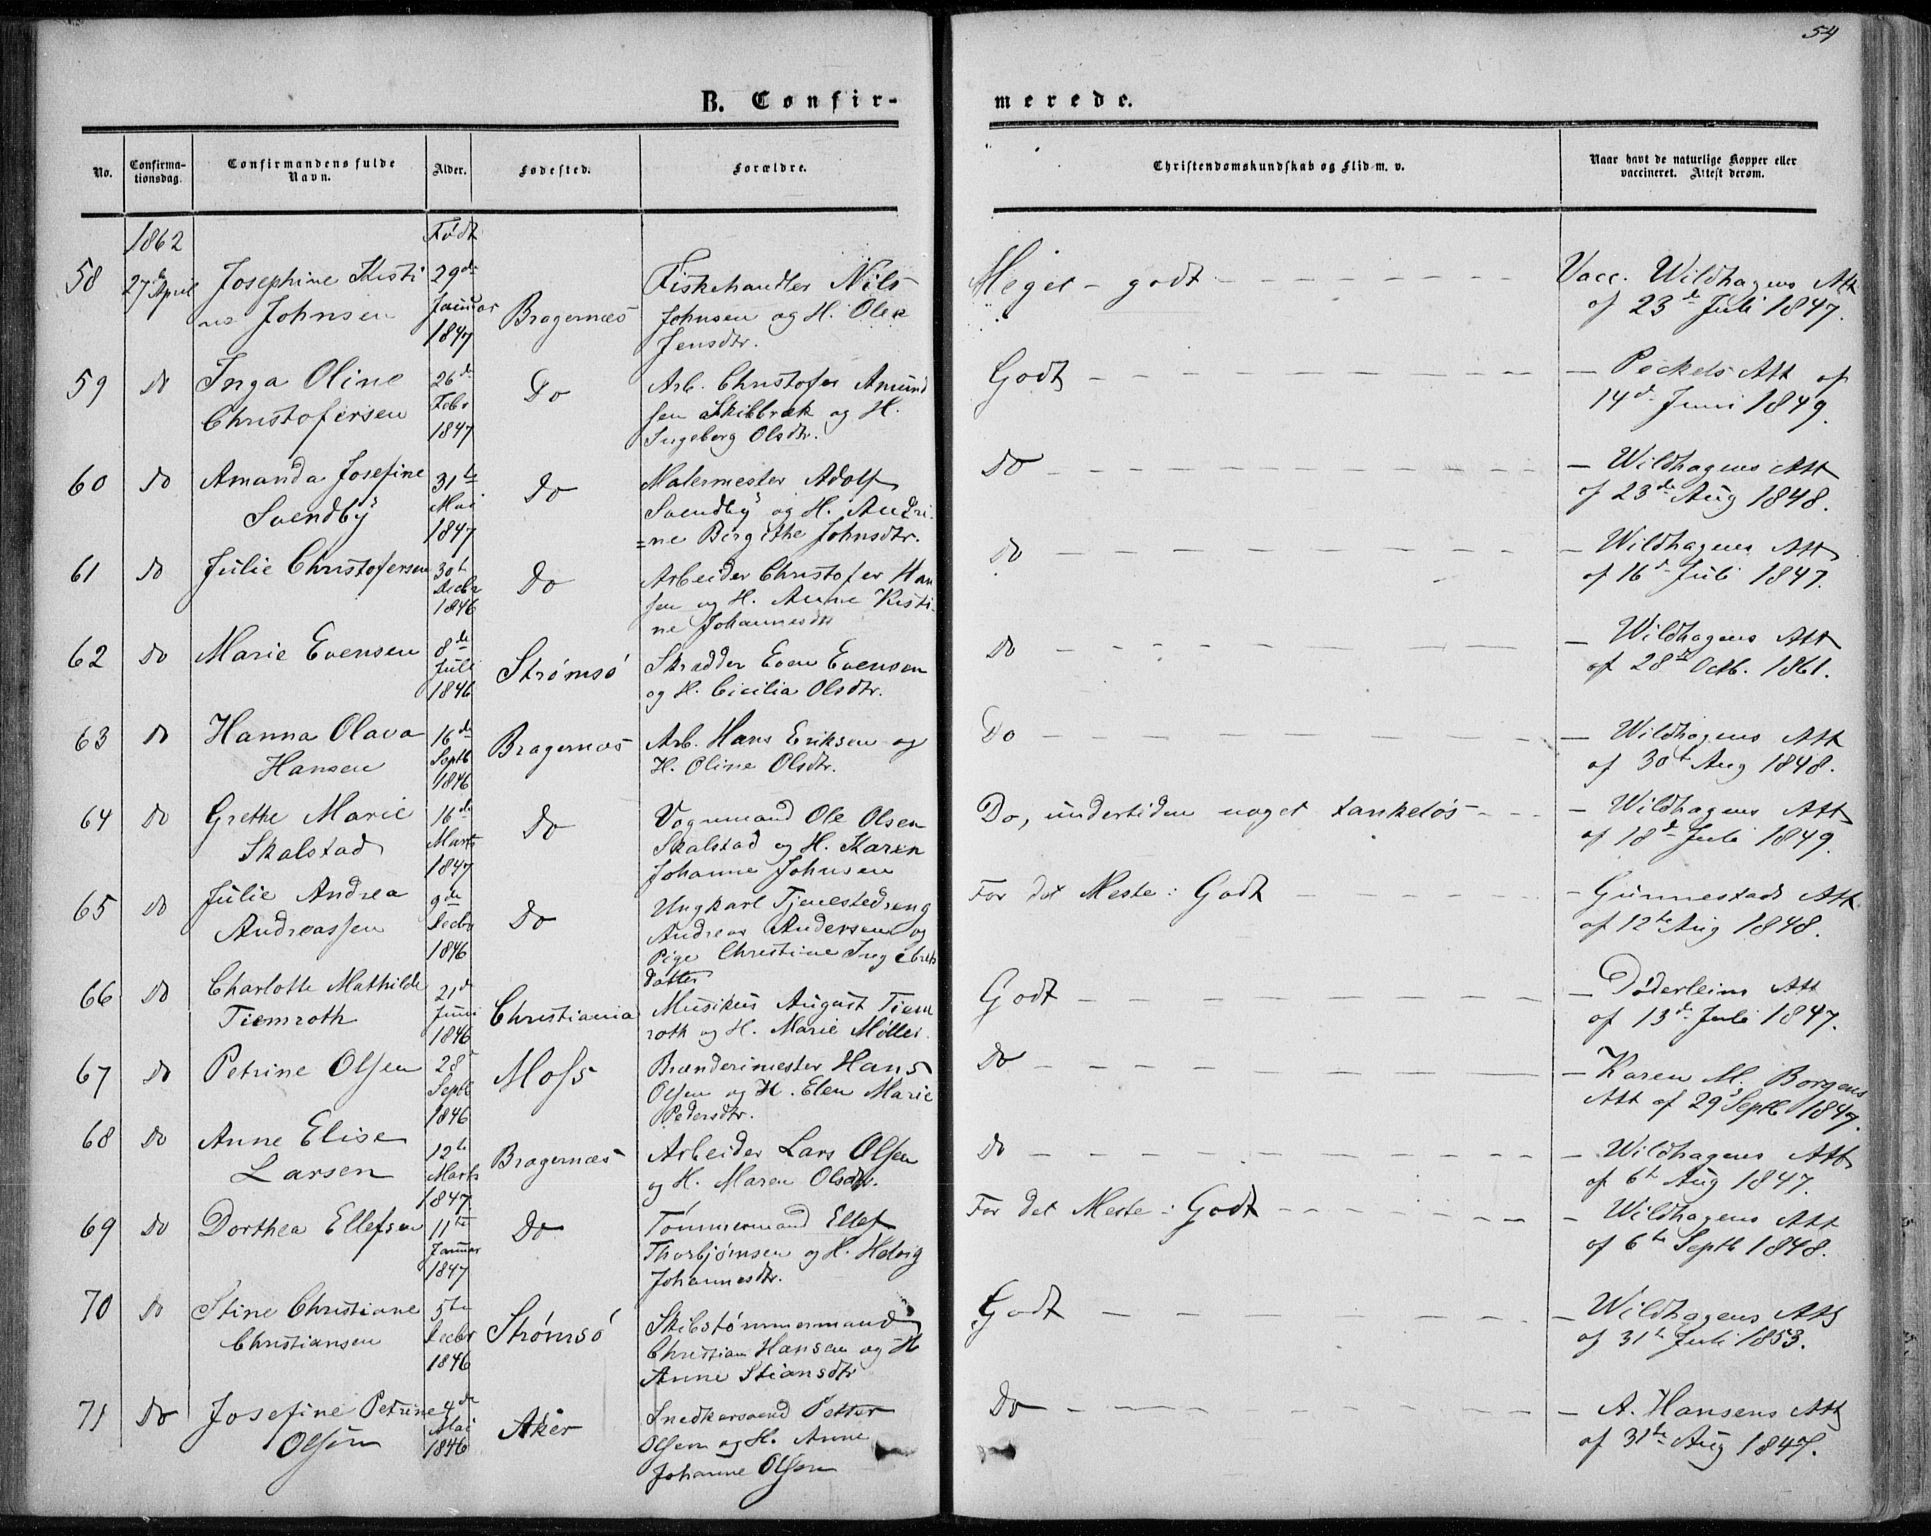 54
B. Confirmerede.
No.
Confirma-
tionsdag.
Confirmandens fulde
Navn.
Alder.
Fødested.
Forældre.
Christendomskundskab og Flid m. v.
Naar havt de naturlige Kopper eller
vaccineret. Attest derom.
1862
Født
58 27de April Josephine Kisti
ne Johnsen
29de
Januar
1847
Bragernæs
Fiskehandler Nils
Johnsen og H. Olea
Jensdtr.
Meget godt
Vacc. Wildhagens Att
af 23de Juli 1847.
59 Do Inga Oline
Christofersen
26de
Febr
1847
Do
Arb. Christofer Amund
sen Skibbræk og H.
Ingeborg Olsdtr.
Godt
— Peckels Att af
14de Juni 1849.
60 Do Amanda Josefine
Svendby
31te
Mai
1847
Do
Malermester Adolf
Svendby og H. Andri
=ne Birgithe Johnsdtr.
Do
— Wildhagens Att
af 23de Aug 1848.
61 Do Julie Christofersen
30t
Decbr
1846
Do
Arbeider Christofer Han
sen og H. Anne Kisti
ne Johannesdtr
Do
— Wildhagens Att
af 16de Juli 1847.
62 Do Marie Evensen
8de
Juli
1846
Strømsø
Skrædder Even Evensen
og H. Cicilia Olsdtr.
Do
— Wildhagens Att
af 28de Octb. 1861.
63 Do Hanna Olava
Hansen
16de
Septb
1846
Bragernæs
Arb. Hans Eriksen og
H. Oline Olsdtr.
Do
— Wildhagens Att
af 30t Aug 1848.
64 Do Grethe Marie
Skalstad
16de
Marts
1847
Do
Vognmand Ole Olsen
Skalstad og H. Karen
Johanne Johnsen
Do, undertiden noget tankeløs
— Wildhagens Att
af 18de Juli 1849.
65 Do Julie Andrea
Andreassen
9de
Decbr
1846
Do
Ungkarl Tjenestedreng
Andreas Andersen og
Pige Christine Ingebrets
datter
For det Meste: Godt
— Gunnestads Att
af 12te Aug 1848.
66 Do Charlotte Mathilde
Tiemroth
21de
Juni
1846
Christiania
Musikus August Tiem
roth og H. Marie Møller.
Godt
— Døderleins Att
af 13de Juli 1847.
67 Do Petrine Olsen
28de
Septb
1846
Moss
Brænderimester Hans
Olsen og H. Elen Marie
Pedersdtr.
Do
— Karen M. Borgens
Att af 29de Septb 1847.
68 Do Anne Elise
Larsen
12te
Marts
1847
Bragernæs
Arbeider Lars Olsen
og H. Maren Olsdtr.
Do
— Wildhagens Att
af 6te Aug 1847.
69 Do Dorthea Ellefsen
11te
Januar
1847
Do
Tømmermand Ellef
Thorbjørnsen og H. Helvig
Johannesdtr.
For det Meste: Godt
— Wildhagens Att
af 6te Septb 1848.
70 Do Stine Christiane
Christiansen
5te
Decbr
1846
Strømsø
Skibstømmermand
Christian Hansen og H
Anne Stiansdtr
Godt
— Wildhagens Att
af 31te Juli 1853.
71 Do Josefine Petrine
Olsen
4de
Mai
1846
Aker
Snedkersvend Petter
Olsen og H. Anne
Johanne Olsen
Do
— A. Hansens Att
af 31te Aug 1847.